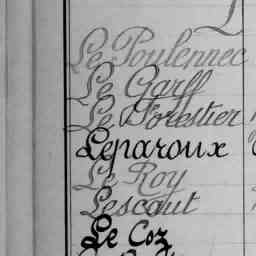 Le Poulennec
Le Garff
Le Forestier
Leparoux
Le Roy
Lescaut
Le Coz